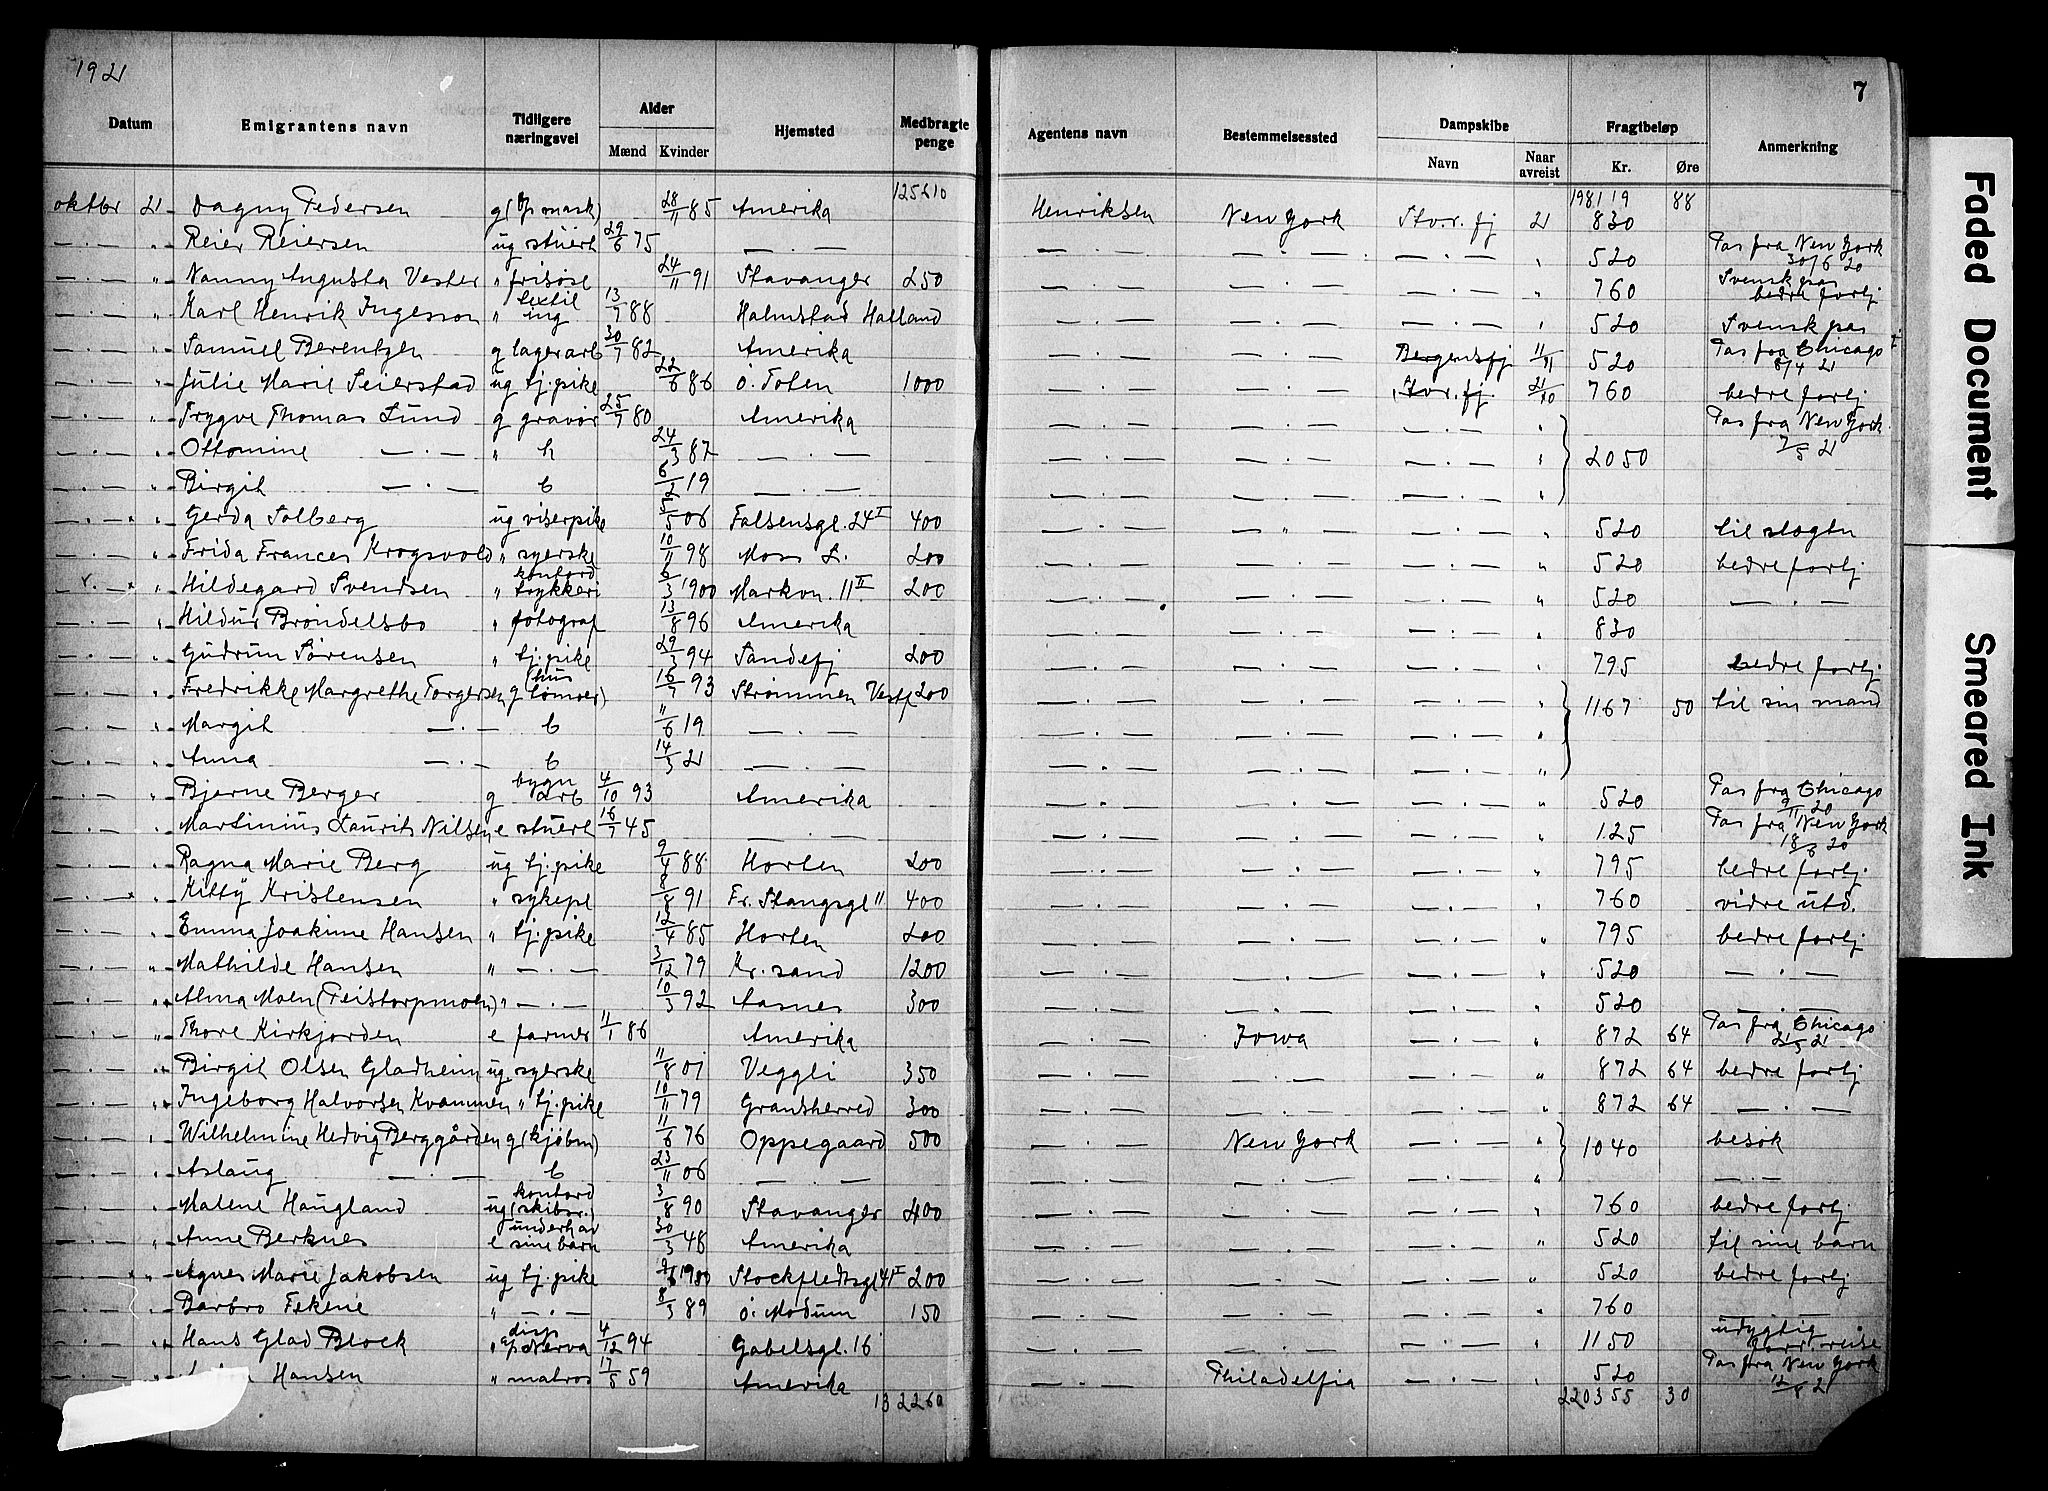 1921
7
Datum | Emigrantens navn | Tidligere næringsvei | Alder Mænd Kvinder | Hjemsted | Medbragte penge | Agentens navn | Bestemmelsessted | Dampskibe Navn Naar avreist | Fragtbeløp Kr. Øre | Anmerkning
125610 | 198119 88
oktbr 21 Dagny Pedersen g (op mask) 28/11 85 Amerika | Henriksen New York Stvr. fj 21 830
— . — " Reier Reiersen ug stuert 29/6 75 — . — | — . — — . — — . — " 520 Pas fra New York 30/6 20
— . — " Nanny Augusta Vester " frisøse 24/11 91 Stavanger 250 | — . — — . — — . — " 760 Svensk pas bedre forlj
— . — " Karl Henrik Ingesson " textil ing 13/7 88 Halmstad Halland | — . — — . — — . — " 520 Svensk pas
— . — " Samuel Berentzen g lagerarb 30/7 82 Amerika | — . — — . — Bergensfj 11/11 520 Pas fra Chicago 8/4 21
— . — " Julie Marie Seierstad ug tj. pike 22/6 86 ö. Toten 1000 | — . — — . — Stvr. fj. 21/10 760 bedre forlj
— . — " Trygve Thomas Lund g gravör 25/7 80 Amerika | — . — — . — — . — " Pas fra New York 7/5 21
— . — " Ottomine — . — " h 24/3 87 — . — | — . — — . — — . — " 2050
— . — " Birgit — . — b 6/2 19 — . — | — . — — . — — . — "
— . — " Gerda Solberg ug viserpike 5/5 06 Falsensgt. 24 I 400 | — . — — " — — . — " 520 til slegtn
— . — " Frida Frances Krogsvold " syerske 10/11 98 Moss L. 200 | — . — — . — — . — " 520 bedre forlj
— . — " Hildegard Svendsen " kontord trykkeri 6/3 1900 Markvn. 11 II 200 | — . — — . — — . — " 520 — . —
— . — " Hildur Brondelsbo " fotograf 13/8 96 Amerika | — . — — . — — . — " 830
— . — " Gudrun Sørensen " tj. pike 29/3 94 Sandefj 200 | — . — — . — — . — " 795 bedre forlj
— . — " Fredrikke Margrethe Torgersen g (hus tømmer) 16/7 93 Strømmen Vestf 200 | — . — — . — — . — " 1167 50 til sin mand
— . — " Margit — . — b 11/6 19 — . — | — . — — . — — . — "
— . — " Anna — . — b 14/3 21 — . — | — . — — . — — . — "
— . — " Bjerne Berger g bygn arb 4/10 93 Amerika | — . — — . — — . — " 520 Pas fra Chicago 9/11 20
— . — " Martinius Laurits Nilsen e stuert 16/7 45 — . — | — . — — . — — . — " 125 Pas fra New York 18/6 20
— . — " Ragna Marie Berg ug tj. pike 9/4 88 Horten 200 | — . — — . — — . — " 795 bedre forlj
— . — " Kitty Kristensen " sykepl 8/8 91 Fr. Stangsgt 11 400 | — . — — . — — . — " 760 vidre utd.
— . — " Emma Joakime Hansen " tj. pike 12/4 85 Horten 200 | — . — — . — — . — " 795 bedre forlj
— . — " Mathilde Hansen " — . — 3/12 79 Kr. sand 1200 | — . — — . — — . — " 520 — . —
— . — " Alma Moen (Teistorpmoen) " — . — 10/3 92 Aasnes 300 | — . — — . — — . — " 520 — . —
— . — " Thore Kirkjorden e farmer 11/1 86 Amerika | — . — Iowa — . — " 872 64 Pas fra Chicago 21/5 21
— . — " Birgit Olsen Gladheim ug syerske 11/8 01 Veggli 350 | — . — — . — — . — " 872 64 bedre forlj
— . — " Ingeborg Halvorsen Kvammen " tj. pike 10/11 79 Gransherred 300 | — . — — . — — . — " 872 64 — . —
— . — " Wilhelmine Hedvig Berggården g (kjøbm) 11/6 76 Oppegaard 500 | — . — New York — . — " 1040 besök
— . — " Aslaug — . — b 23/11 06 — . — | — . — — . — — . — " — . —
— . — " Malene Haugland ug kontord (skibsr.) 3/8 90 Stavanger 400 | — . — — . — — . — " 760 bedre forlj
— . — " Anne Berknes e underh av sine barn 30/3 48 Amerika | — . — — . — — . — " 520 til sine barn
— . — " Agnes Marie Jakobsen ug tj. pike 1900 Stockfledtsgt 41 I 200 | — . — — . — — . — " 520 bedre forlj
— . — " Barbro Tekene " — . — 8/3 89 ö. Modum 150 | — . — — . — — . — " 760 — . —
— . — " Hans Glad Block " disp 4/12 94 Gabelsgt. 16 | — . — — . — — . — " 1150 forr. reise
— . — Hansen " matros 17/8 59 Amerika | — . — Philadelfia — . — " 520 Pas fra New York 12/8 21
132260 | 220355 30
Faded Document
Smeared Ink